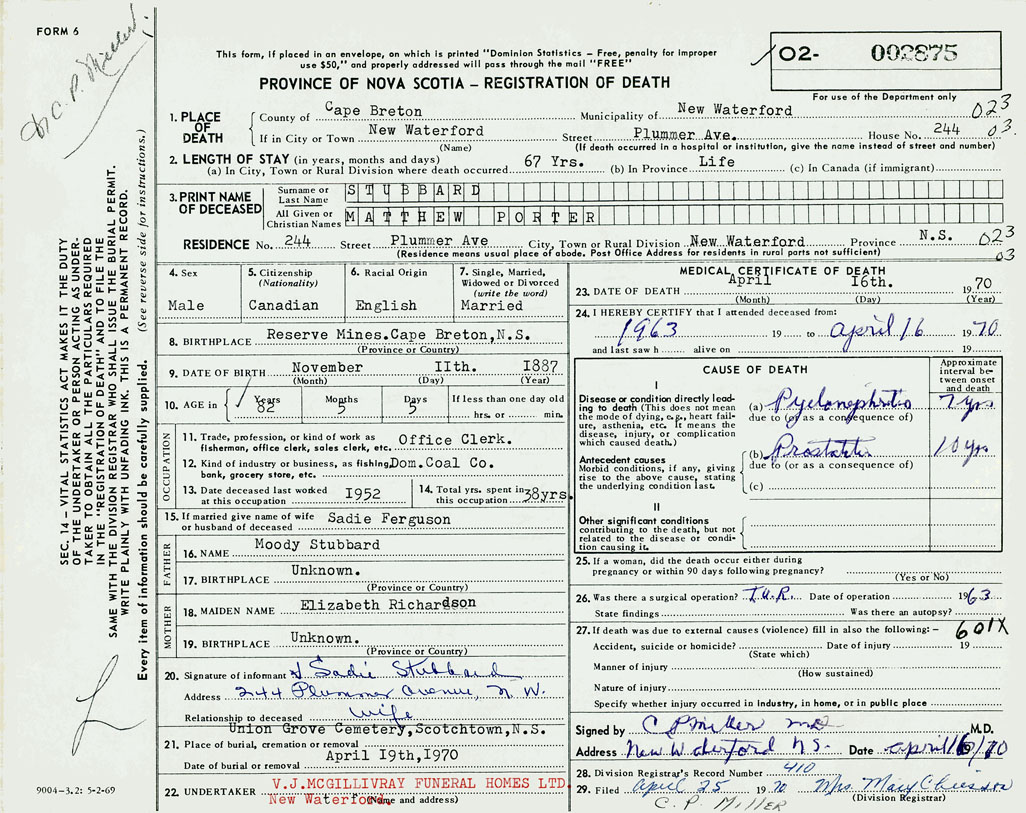 FORM 6
Dr C. P. Miller.
This form, if placed in an envelope, on which is printed "Dominion Statistics – Free, penalty for improper
use $50," and properly addressed will pass through the mail "FREE"
PROVINCE OF NOVA SCOTIA – REGISTRATION OF DEATH
02- 002875
For use of the Department only
1. PLACE OF DEATH
County of Cape Breton Municipality of New Waterford 023
If in City or Town New Waterford Street Plummer Ave. House No. 244 03.
(Name) (If death occurred in a hospital or institution, give the name instead of street and number)
2. LENGTH OF STAY (in years, months and days)
(a) In City, Town or Rural Division where death occurred 67 Yrs. (b) In Province Life (c) In Canada (if immigrant)
3. PRINT NAME OF DECEASED
Surname or Last Name STUBBARD
All Given or Christian Names MATTHEW PORTER
RESIDENCE No. 244 Street Plummer Ave City, Town or Rural Division New Waterford Province N.S. 023
(Residence means usual place of abode. Post Office Address for residents in rural parts not sufficient) 03
4. Sex
Male
5. Citizenship
(Nationality)
Canadian
6. Racial Origin
English
7. Single, Married,
Widowed or Divorced
(write the word)
Married
8. BIRTHPLACE Reserve Mines.Cape Breton,N.S.
(Province or Country)
9. DATE OF BIRTH November IIth. I887
(Month) (Day) (Year)
10. AGE in Years 82 Months 5 Days 5 If less than one day old
hrs. or min.
OCCUPATION
11. Trade, profession, or kind of work as
fisherman, office clerk, sales clerk, etc. Office Clerk.
12. Kind of industry or business, as fishing, Dom.Coal Co.
bank, grocery store, etc.
13. Date deceased last worked
at this occupation I952
14. Total yrs. spent in
this occupation 38yrs.
15. If married give name of wife
or husband of deceased Sadie Ferguson
FATHER
16. NAME Moody Stubbard
17. BIRTHPLACE Unknown.
(Province or Country)
MOTHER
18. MAIDEN NAME Elizabeth Richardson
19. BIRTHPLACE Unknown.
(Province or Country)
20. Signature of informant Sadie Stubbard
Address 244 Plummer Avenue, N. W.
Relationship to deceased Wife
Union Grove Cemetery,Scotchtown,N.S.
21. Place of burial, cremation or removal
Date of burial or removal April I9th,I970
22. UNDERTAKER V.J.MCGILLIVRAY FUNERAL HOMES LTD.
New Waterford.
(Name and address)
MEDICAL CERTIFICATE OF DEATH
23. DATE OF DEATH April I6th. 1970
(Month) (Day) (Year)
24. I HEREBY CERTIFY that I attended deceased from:
1963 19 to April 16 1970
and last saw h alive on 19
CAUSE OF DEATH
Approximate interval between onset and death
I
Disease or condition directly leading
to death (This does not mean
the mode of dying, e.g., heart failure,
asthenia, etc. It means the
disease, injury, or complication
which caused death.)
(a) Pyelonephritis 7 yrs
due to (or as a consequence of)
Antecedent causes
Morbid conditions, if any, giving
rise to the above cause, stating
the underlying condition last.
(b) Prostatitis 10 yrs
due to (or as a consequence of)
(c)
II
Other significant conditions
contributing to the death, but not
related to the disease or condition
causing it.
25. If a woman, did the death occur either during
pregnancy or within 90 days following pregnancy?
(Yes or No)
26. Was there a surgical operation? T.U.R. Date of operation 1963
State findings Was there an autopsy?
27. If death was due to external causes (violence) fill in also the following:– 601X
Accident, suicide or homicide? Date of injury 19
(State which)
Manner of injury
(How sustained)
Nature of injury
Specify whether injury occurred in industry, in home, or in public place
Signed by C P Miller MD M.D.
Address New Waterford NS. Date April 16/70
28. Division Registrar's Record Number 410
29. Filed April 25 1970 Mrs. Mary
(Division Registrar)
C. P. MILLER
SEC. 14 – VITAL STATISTICS ACT MAKES IT THE DUTY
OF THE UNDERTAKER OR PERSON ACTING AS UNDER-
TAKER TO OBTAIN ALL THE PARTICULARS REQUIRED
IN THE "REGISTRATION OF DEATH" AND TO FILE THE
SAME WITH THE DIVISION REGISTRAR WHO SHALL ISSUE THE BURIAL PERMIT.
WRITE PLAINLY WITH UNFADING INK. THIS IS A PERMANENT RECORD.
Every item of information should be carefully supplied. (See reverse side for instructions.)
9004-3.2: 5-2-69